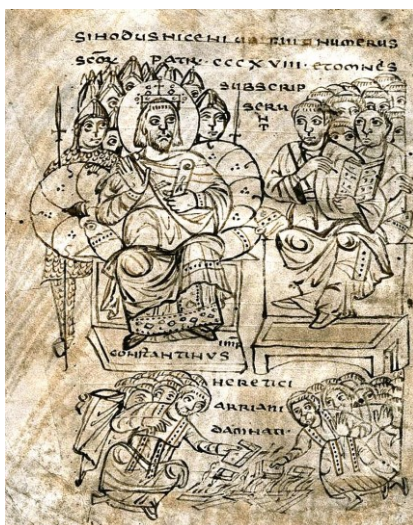 SINODUS NICENI UBI ERANT NUMERUS
SCŌR PATR CCCXVIII ET OMNES
SUBSCRIP
SERU
NT
IMP
CONSTANTINUS
HERETICI
ARRIANI
DAMNATI